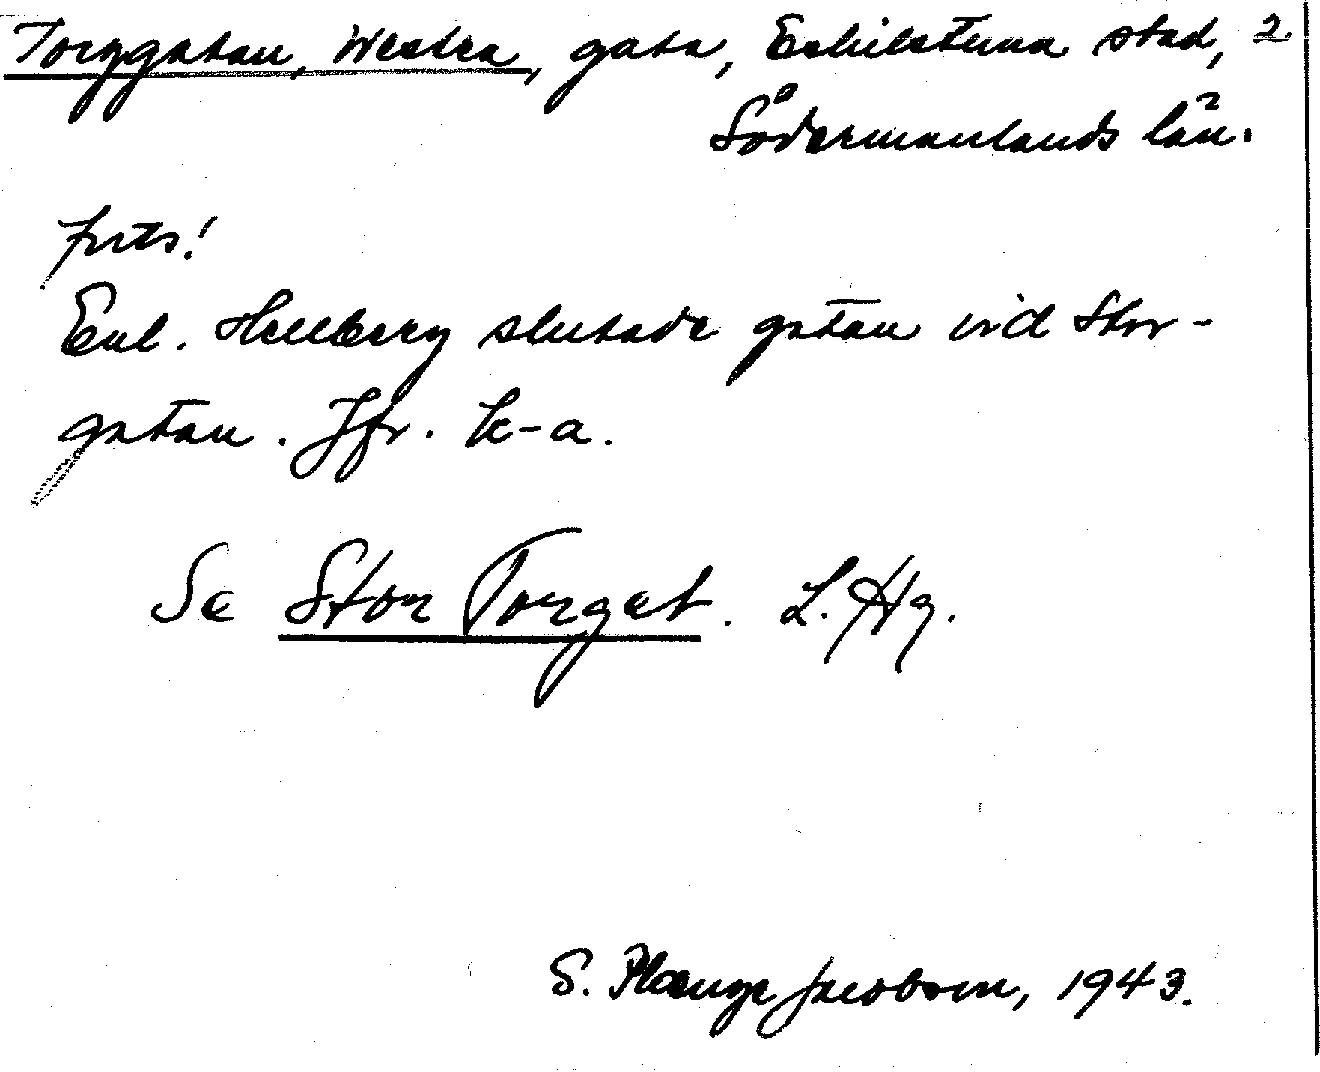 Torggatan, Westra, gata, Eskilstuna stad, 2
Södermanlands län.
forts!
Enl. Hellberg slutade gatan vid Stor-
gatan. Jfr. k-a.
Se Stor Torget. L. Hg.
S. Plænge Jacobson, 1943.